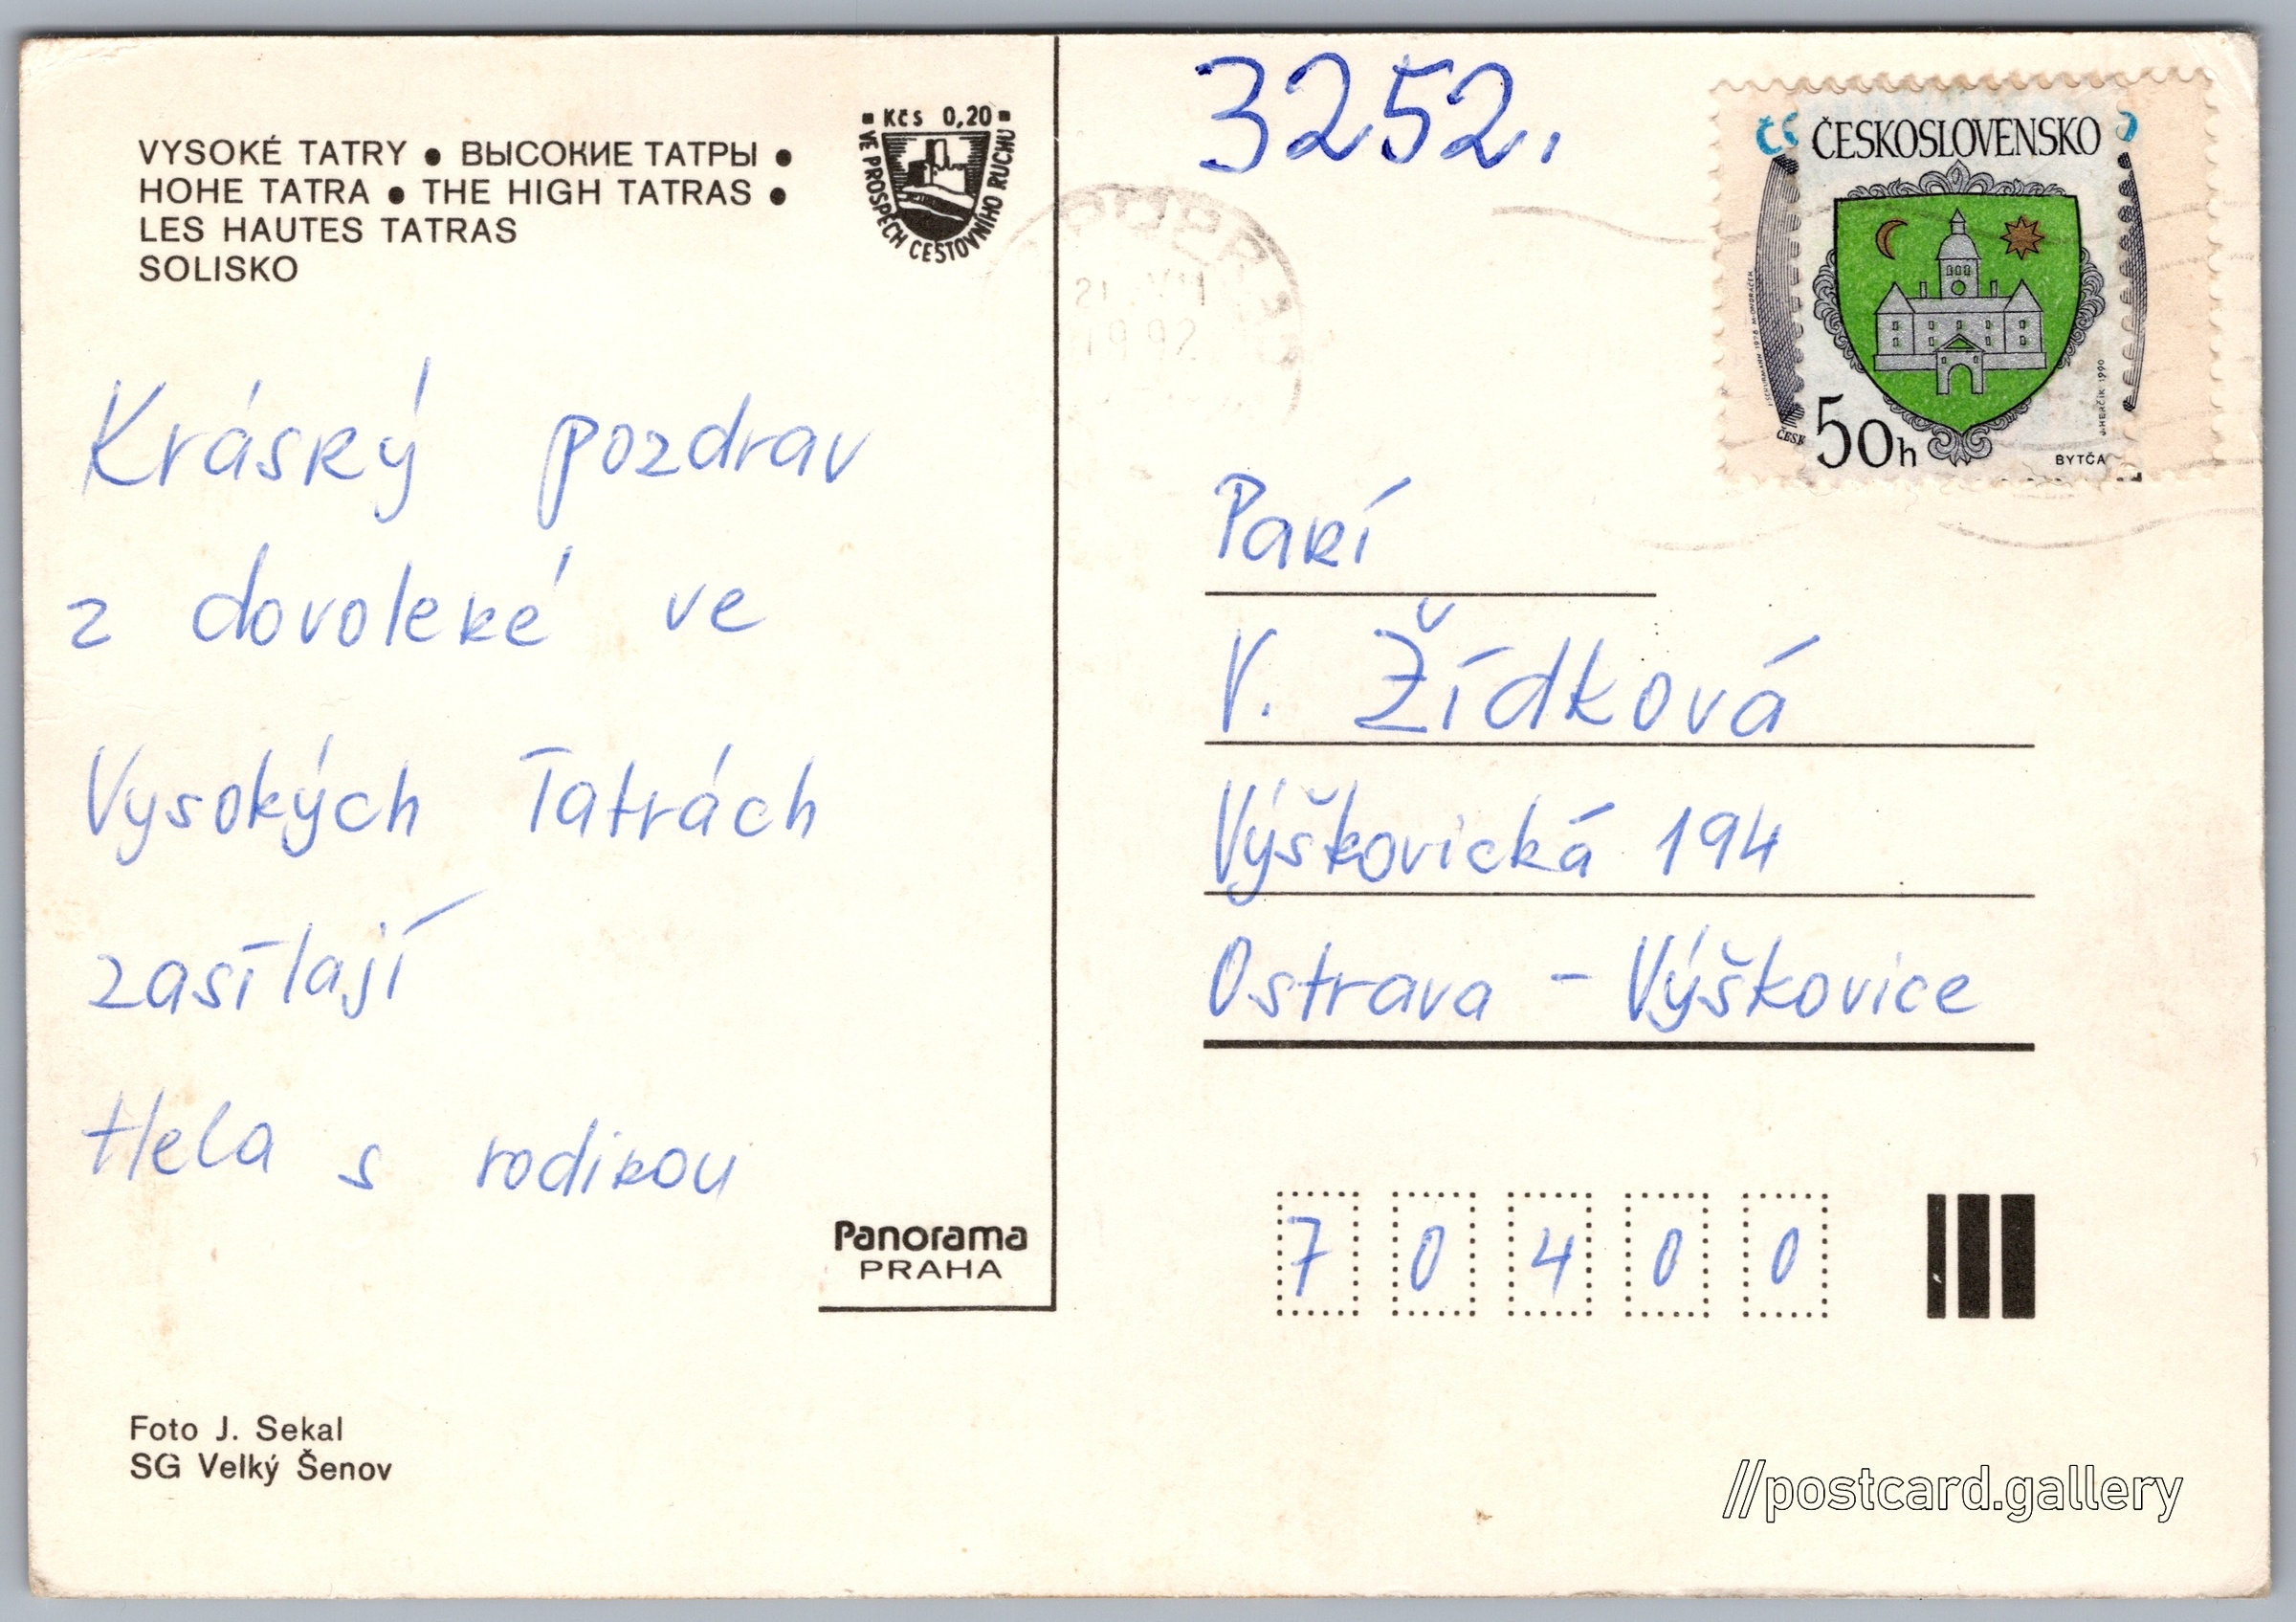 VYSOKÉ TATRY ● ВЫСОКИЕ ТАТРЫ ●
HOHE TATRA ● THE HIGH TATRAS ●
LES HAUTES TATRAS
SOLISKO
Kčs 0,20
VE PROSPĚCH CESTOVNÍHO RUCHU
Krásný pozdrav
z dovolené ve
Vysokých Tatrách
zasílají
Hela s rodinou
Panorama
PRAHA
Foto J. Sekal
SG Velký Šenov
3252.
1992
ČESKOSLOVENSKO
50h
BYTČA
J. HERČÍK 1990
ČESK
Paní
V. Žídková
Výškovická 194
Ostrava - Výškovice
7 0 4 0 0
//postcard.gallery